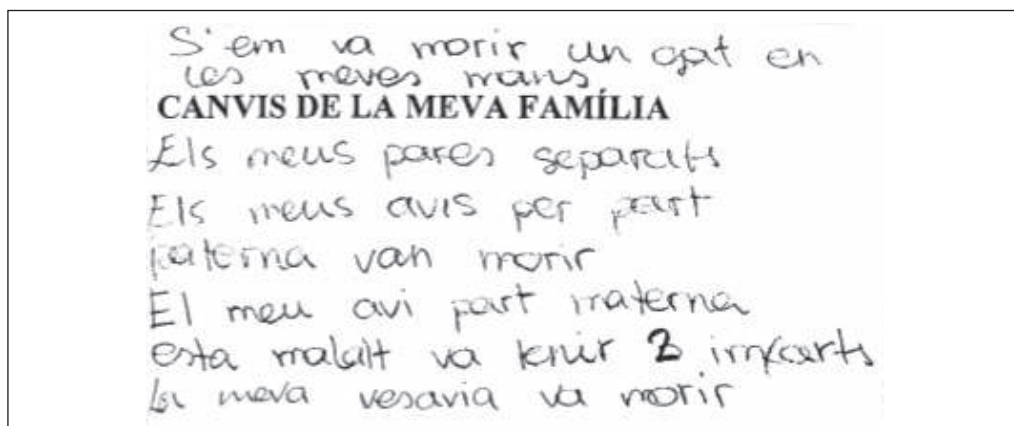 S'em va morir un gat en
les meves mans
CANVIS DE LA MEVA FAMÍLIA
Els meus pares separats
Els meus avis per part
paterna van morir
El meu avi part materna
esta malalt va tenir 3 imfarts
La meva vesavia va morir